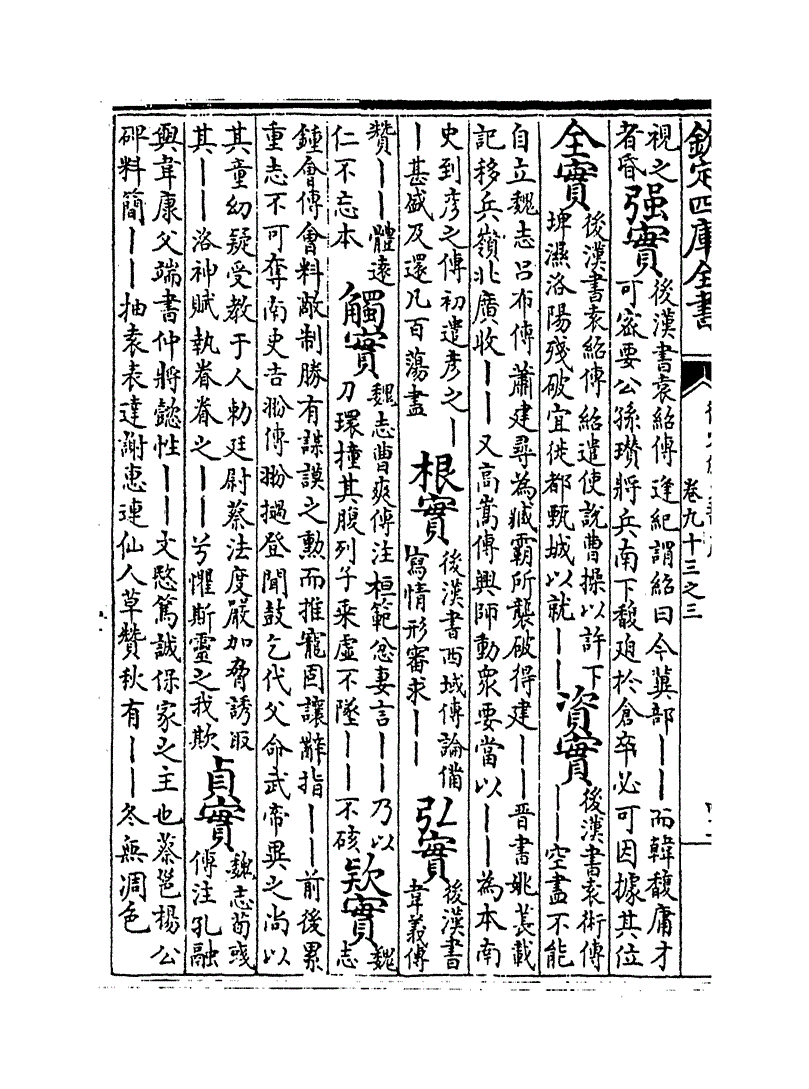 欽定四庫全書
卷九十三之三
視之
者昏
强實
後漢書袁紹傳逢紀謂紹曰今冀部||而韓馥庸才
可密要公孫瓚將兵南下馥廹於倉卒必可因據其位
全實
後漢書袁紹傳紹遣使說曹操以許下
埤濕洛陽殘破宜徙都甄城以就||
資實
後漢書袁術傳
||空盡不能
自立魏志呂布傳蕭建尋為臧霸所襲破得建||晉書姚萇載
記移兵嶺北廣收||又高嵩傳興師動衆要當以||為本南
史到彥之傳初遣彥之|
|甚盛及還凡百蕩盡
根實
後漢書西域傳論備
寫情形審求||
弘實
後漢書
韋義傳
贊||體遠
仁不忘本
觸實
魏志曹爽傳注桓範忿妻言||乃以
刀環撞其腹列子乘虛不墜||不硋
款實
魏
志
鍾會傳會料敵制勝有謀謨之勲而推寵固讓辭指||前後累
重志不可奪南史吉翂傳翂撾登聞鼓乞代父命武帝異之尚以
其童幼疑受教于人勅廷尉蔡法度嚴加脅誘取
其||洛神賦執眷眷之||兮懼斯靈之我欺
貞實
魏志荀彧
傳注孔融
與韋康父端書仲將懿性||文愍篤誠保家之主也蔡邕楊公
碑料簡||抽袁表達謝惠連仙人草贊秋有||冬無凋色